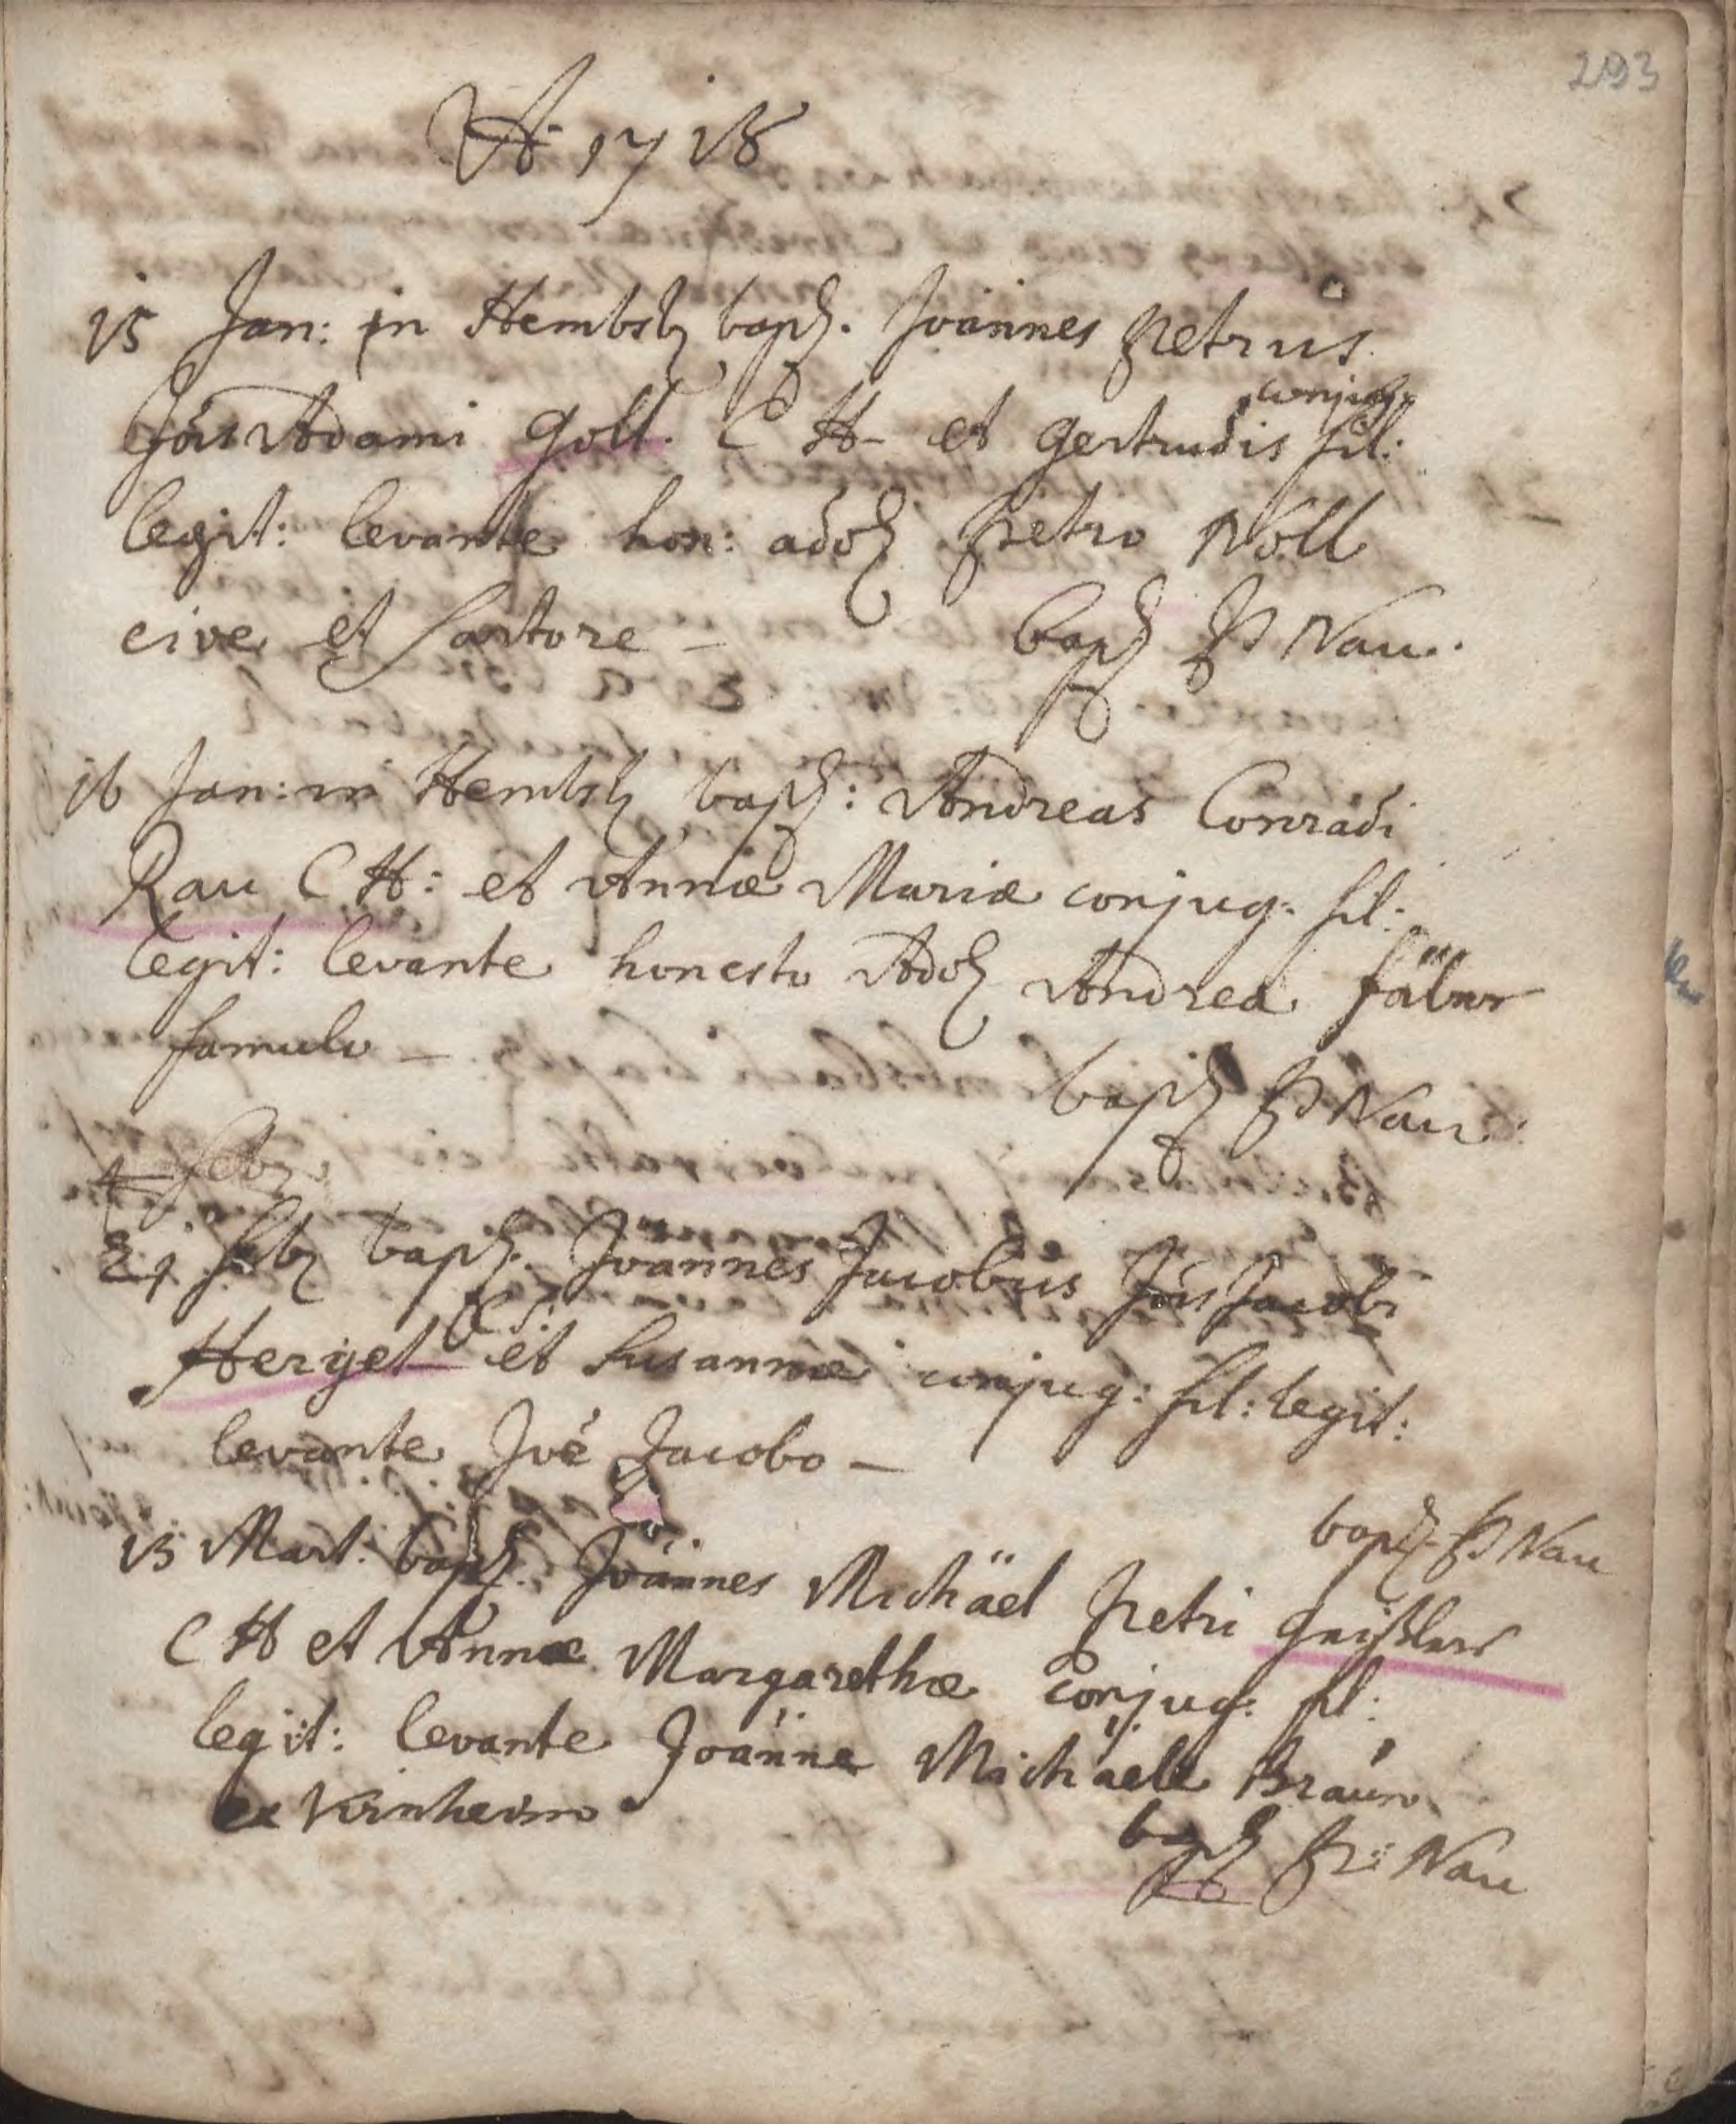 293
A: 1718
15 Jan: in Hembsb bapt. Joannes Petrus
Jois Adami Goll. C H- et Gertrudis conjug: fil:
legit: levante hon: adol Petro Nöll
cive et sartore –
bapt P Nau.
16 Jan: in Hembsb bapt: Andreas Conradi
Rau C H: et Annæ Mariæ conjug: fil:
legit: levante honesto Adol Andrea
famulo –
bapt P Nau:
4 febr
21 febr bapt. Joannes Jacobus Jois Jacobi
Herget et Susannæ conjug: fil: legit:
levante Joe Jacobo –
bapt. P Nau
15 Mart: bapt. Joannes Michäel Petri Geißler
C H et Annæ Margarethæ Conjug: fil:
legit: levante Joänne Michäele Braun
ex Virnheim
bapt P: Nau